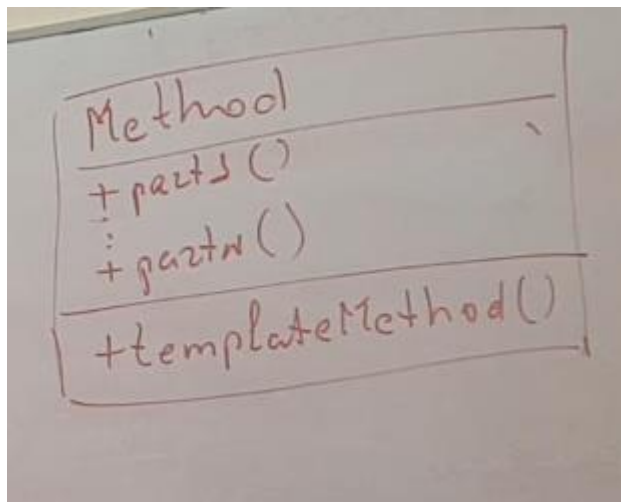 Method
+ part1()
⋮
+ partN()
+templateMethod()